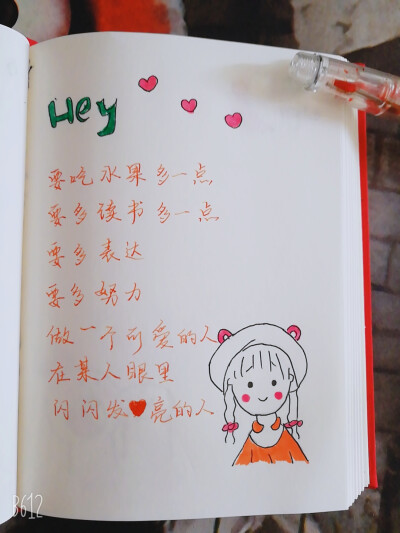 Hey
要吃水果多一点
要多读书多一点
要多表达
要多努力
做一个可爱的人
在某人眼里
闪闪发亮的人
B612